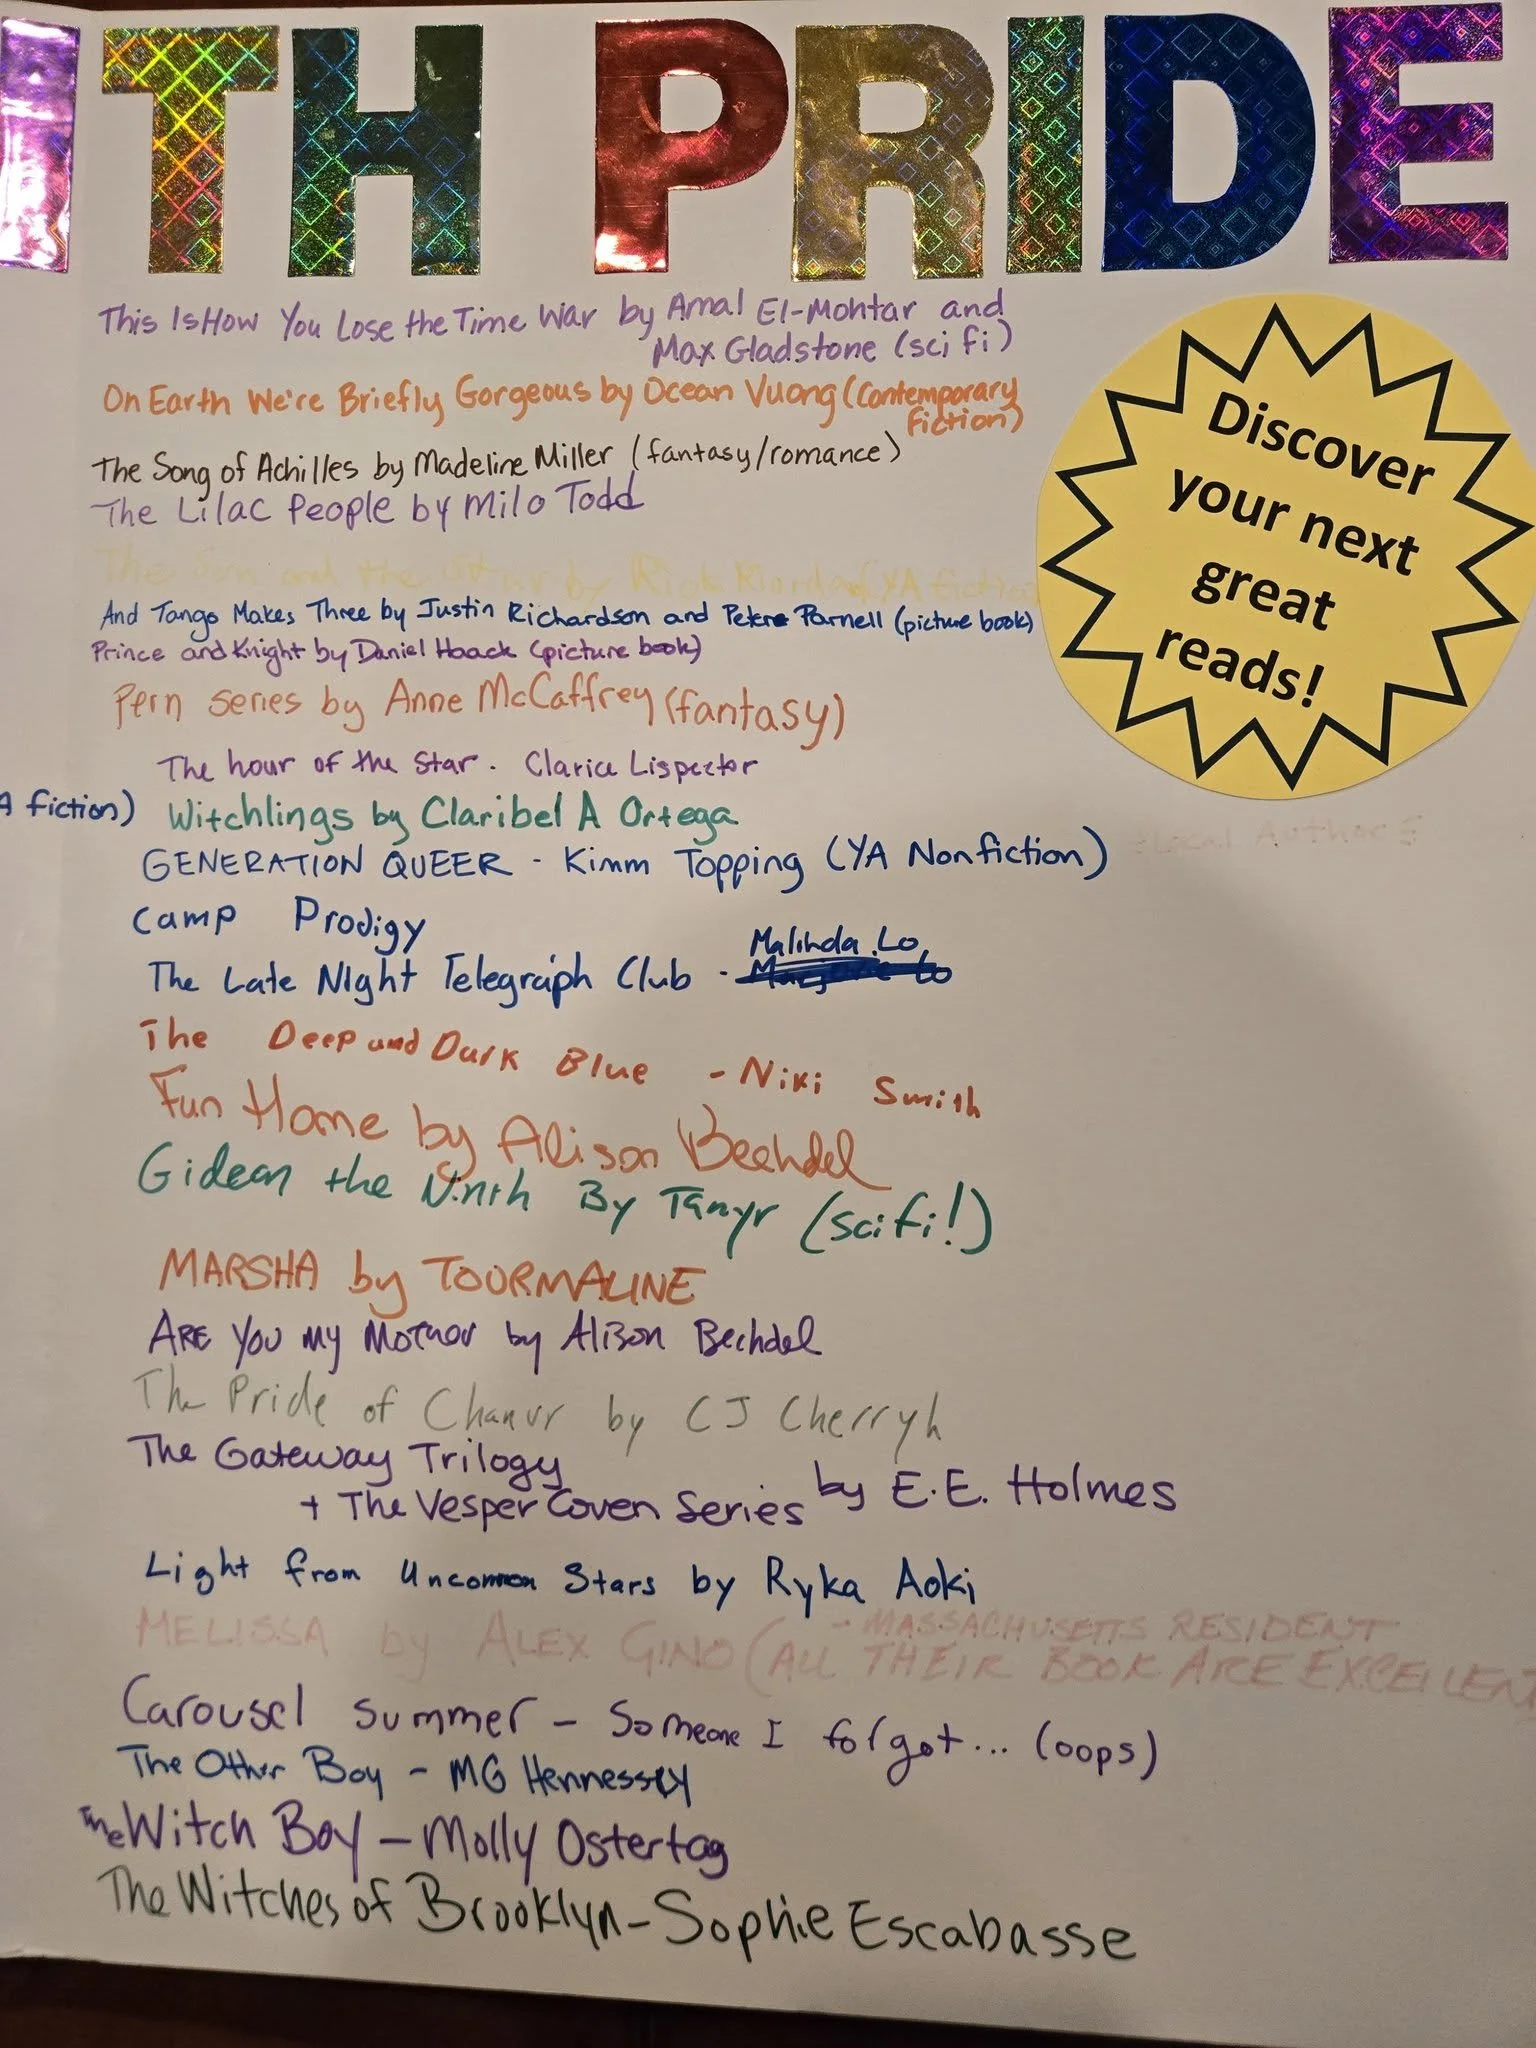 ITH PRIDE
This Is How You Lose the Time War by Amal El-Mohtar and
Max Gladstone (sci fi)
On Earth We're Briefly Gorgeous by Ocean Vuong (Contemporary
fiction)
The Song of Achilles by Madeline Miller (fantasy/romance)
The Lilac People by Milo Todd
The Sun and the Star by Rick Riordan (YA fiction
And Tango Makes Three by Justin Richardson and Peter Parnell (picture book)
Prince and Knight by Daniel Haack (picture book)
Pern series by Anne McCaffrey (fantasy)
The hour of the Star. Clarice Lispector
A fiction)
Witchlings by Claribel A Ortega
GENERATION QUEER - Kimm Topping (YA Nonfiction)
Camp Prodigy
Malinda Lo
The Late Night Telegraph Club -
The Deep and Dark Blue - Niki Smith
Fun Home by Alison Bechdel
Gideon the Ninth By Tamyr (scifi!)
MARSHA by TOURMALINE
ARE YOU MY MOTHER by Alison Bechdel
The Pride of Chanur by CJ Cherryh
The Gateway Trilogy
+ The Vesper Coven Series by E.E. Holmes
Light from Uncommon Stars by Ryka Aoki
- MASSACHUSETTS RESIDENT
MELISSA by ALEX GINO (ALL THEIR BOOK ARE EXCELLENT
Carousel Summer - Someone I forgot... (oops)
The Other Boy - MG Hennessey
The Witch Boy - Molly Ostertag
The Witches of Brooklyn - Sophie Escabasse
Discover
your next
great
reads!
Local Author